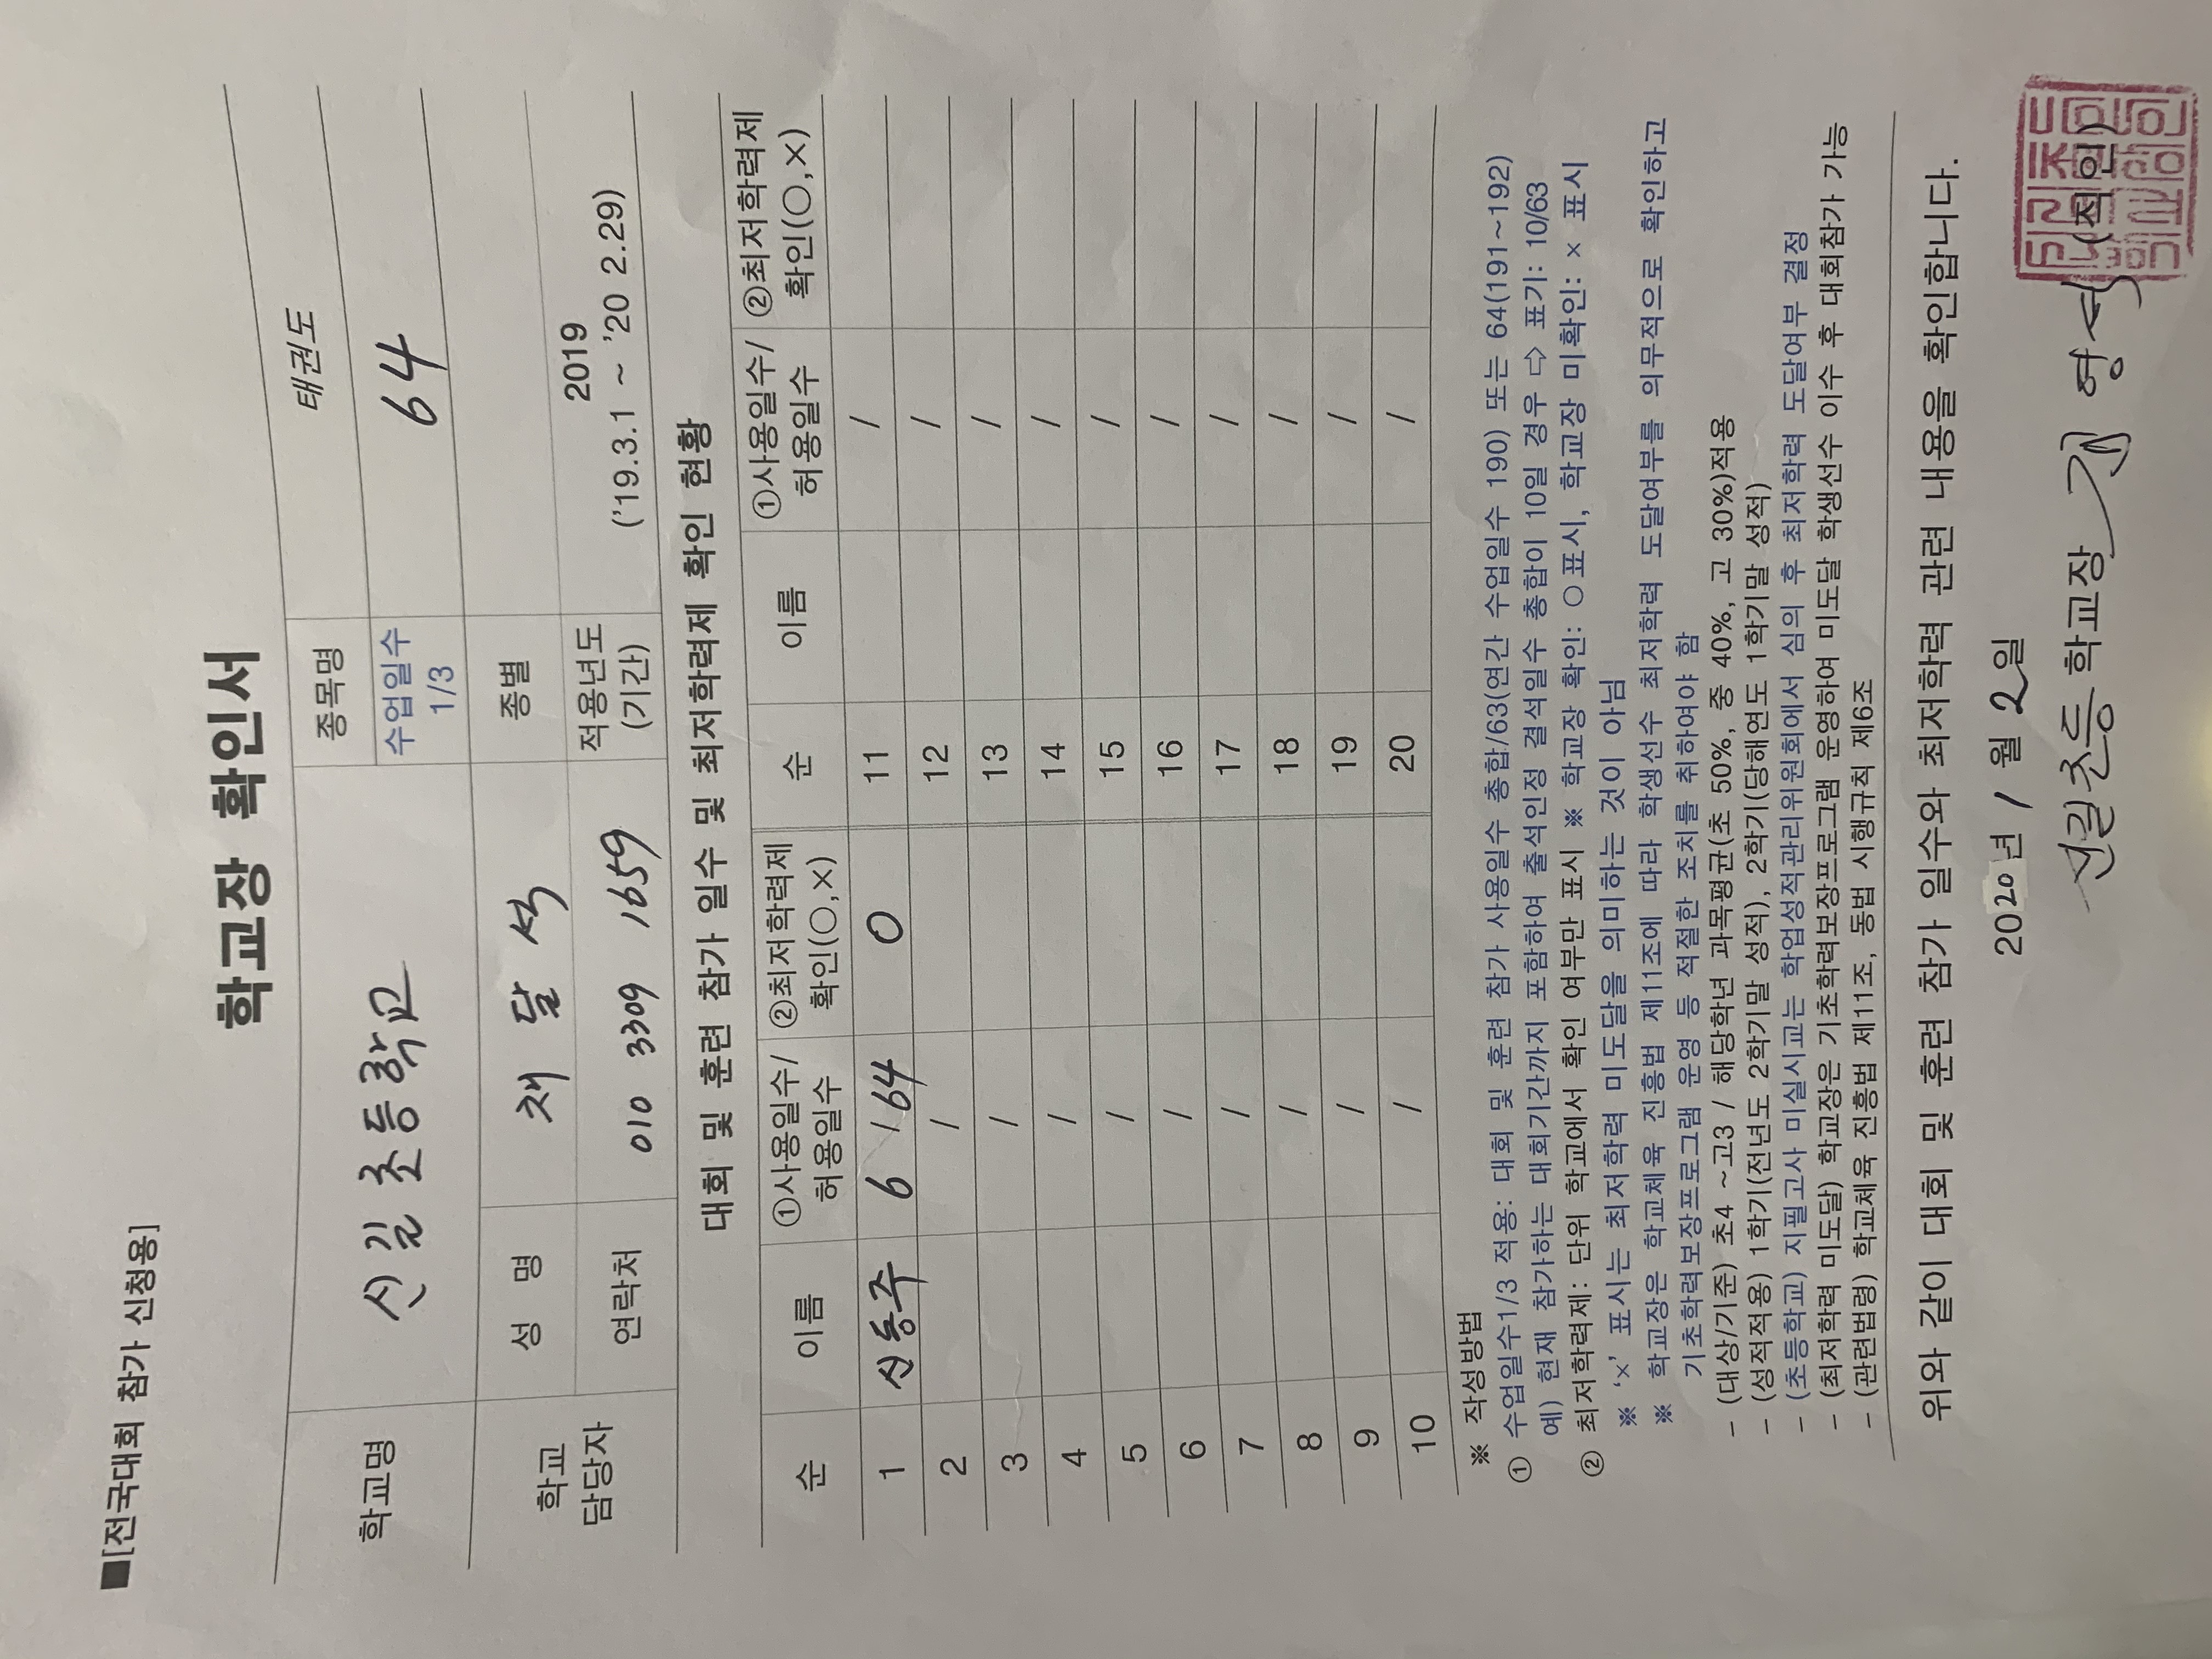 ■[전국대회 참가 신청용]
학교장 확인서
학교명 신길초등학교 종목명 태권도
수업일수 1/3 64
학교 담당자 성 명 채달석 종별
연락처 010 3309 1659 적용년도 (기간) 2019 ('19.3.1 ~ '20 2.29)
대회 및 훈련 참가 일수 및 최저학력제 확인 현황
순 이름 ①사용일수/허용일수 ②최저학력제 확인(○,×) 순 이름 ①사용일수/허용일수 ②최저학력제 확인(○,×)
1 신동주 6 / 64 O 11 /
2 / 12 /
3 / 13 /
4 / 14 /
5 / 15 /
6 / 16 /
7 / 17 /
8 / 18 /
9 / 19 /
10 / 20 /
※ 작성방법
① 수업일수1/3 적용: 대회 및 훈련 참가 사용일수 총합/63(연간 수업일수 190) 또는 64(191~192)
예) 현재 참가하는 대회기간까지 포함하여 출석인정 결석일수 총합이 10일 경우 ⇨ 표기: 10/63
② 최저학력제: 단위 학교에서 확인 여부만 표시 ※ 학교장 확인: ○표시, 학교장 미확인: × 표시
※ '×' 표시는 최저학력 미도달을 의미하는 것이 아님
※ 학교장은 학교체육 진흥법 제11조에 따라 학생선수 최저학력 도달여부를 의무적으로 확인하고
기초학력보장프로그램 운영 등 적절한 조치를 취하여야 함
- (대상/기준) 초4 ~고3 / 해당학년 과목평균(초 50%, 중 40%, 고 30%)적용
- (성적적용) 1학기(전년도 2학기말 성적), 2학기(당해연도 1학기말 성적)
- (초등학교) 지필고사 미실시교는 학업성적관리위원회에서 심의 후 최저학력 도달여부 결정
- (최저학력 미도달) 학교장은 기초학력보장프로그램 운영하여 미도달 학생선수 이수 후 대회참가 가능
- (관련법령) 학교체육 진흥법 제11조, 동법 시행규칙 제6조
위와 같이 대회 및 훈련 참가 일수와 최저학력 관련 내용을 확인합니다.
2020년 1월 2일
신길초등학교장 (직인)